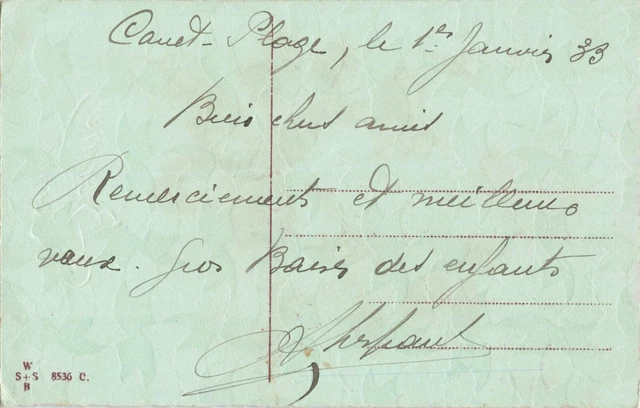 Canet-Plage, le 1er Janvier 33
Bien chers amis
Remerciements et meilleurs
voeux. Gros Baisers des enfants
W
S+S 8536 C.
B